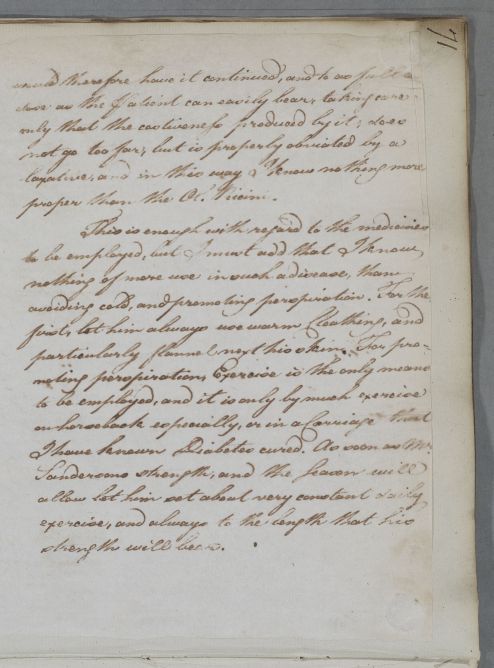 14
would therefore have it continued, and to as full a
dose as the Patient can easily bear, taking care
only that the costiveness produced by it, does
not go too far, but is properly obviated by a
laxative, and in this way I know nothing more
proper than the Ol. Ricini.
This is enough with regard to the medicines
to be employed, but I must add that I know
nothing of more use in such a disease, than
avoiding cold, and promoting perspiration. For the
first, let him always use warm Cloathing, and
particularly flannel next his skin. For pro-
moting perspiration, Exercise is the only means
to be employed, and it is only by much exercise
on horseback especially, or in a Carriage that
I have known Diabetes cured. As soon as Mr.
Sandersons strength, and the Season will
allow let him set about very constant daily
exercise, and always to the length that his
strength will bear.